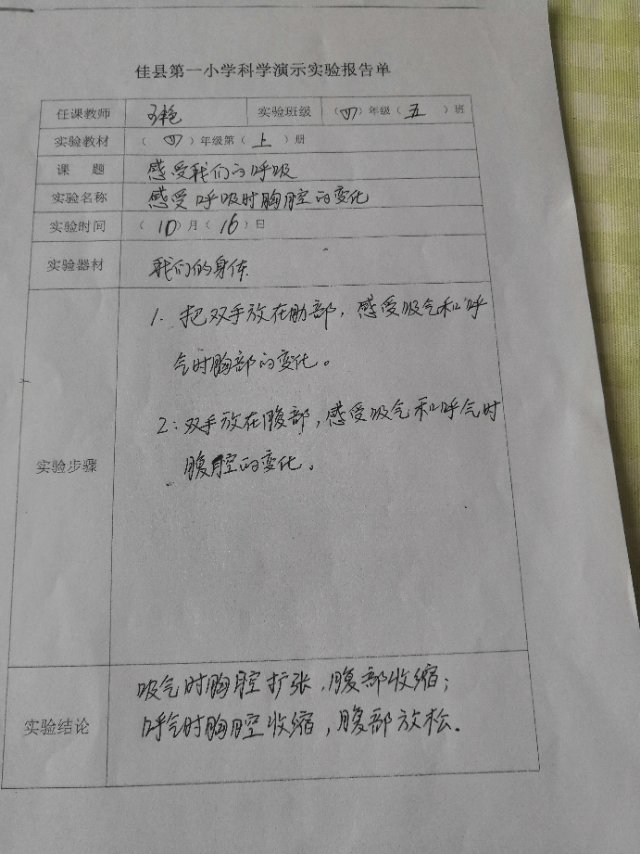 佳县第一小学科学演示实验报告单
任课教师 王艳 实验班级 （四）年级（五）班
实验教材 （四）年级第（上）册
课 题 感受我们的呼吸
实验名称 感受呼吸时胸腔的变化
实验时间 （10）月（16）日
实验器材 我们的身体
实验步骤
1. 把双手放在肋部，感受吸气和呼
气时胸部的变化。
2：双手放在腹部，感受吸气和呼气时
腹腔的变化。
实验结论
吸气时胸腔扩张，腹部收缩；
呼气时胸腔收缩，腹部放松.